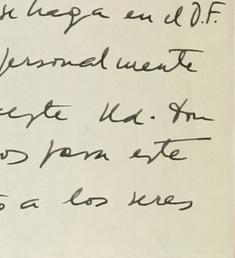 se haga en el D.F.
personalmente
este Ud. tan
os para este
s a los seres